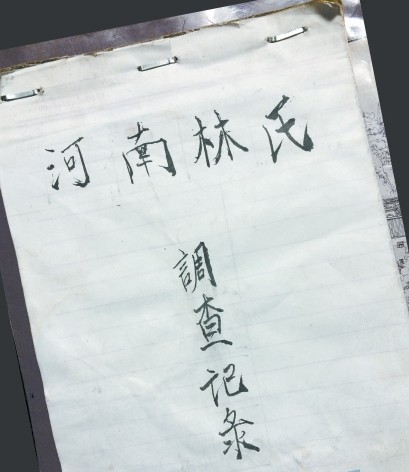 河南林氏
調查记录